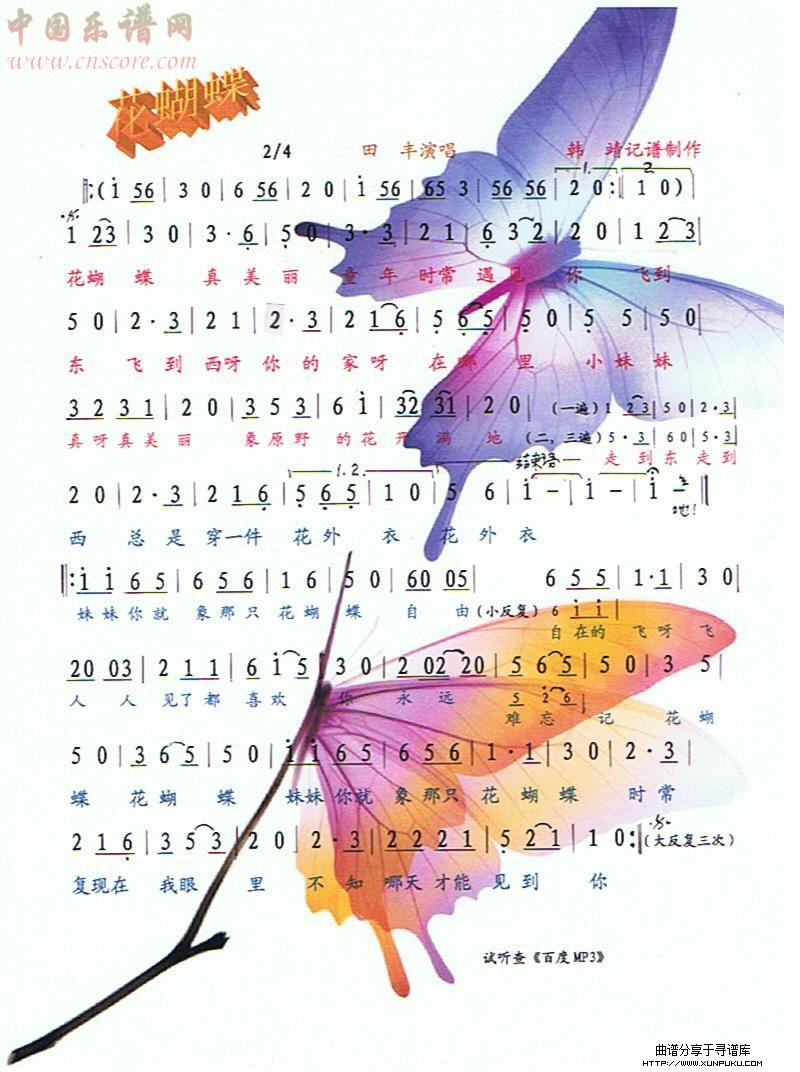 中国乐谱网
www.cnscore.com
花蝴蝶
2/4 田 丰演唱 韩 靖记谱制作
1. 2.
‖:(i 56 | 3 0 | 6 56 | 2 0 | i 56 | 65 3 | 56 56 | 2 0 :‖ 1 0 ) |
1 23 | 3 0 | 3· 6 | 5 0 | 3· 3 | 2 1 | 6 3 2 | 2 0 | 1 2 3 |
花蝴 蝶 真 美 丽 童 年 时常 遇 见 你 飞到
5 0 | 2· 3 | 2 1 | 2· 3 | 2 1 6 | 5 6 5 | 5 0 | 5 5 | 5 0 |
东 飞 到 西呀 你 的 家呀 在 哪 里 小 妹 妹
3 2 3 1 | 2 0 | 3 5 3 | 6 i | 32 31 | 2 0 | (一遍) 1 2 3 | 5 0 | 2· 3 |
真呀真美 丽 象原野 的花 开 满 地 (二,三遍) 5· 3 | 6 0 | 5· 3 |
结束语 走 到 东 走到
1. 2.
2 0 | 2· 3 | 2 1 6 | 5 6 5 | 1 0 | 5 6 | i – | i – | i 0 ‖
西 总 是 穿一件 花 外 衣 花 外 衣 吔!
‖: i i 6 5 | 6 5 6 | 1 6 | 5 0 | 60 05 | 6 5 5 | 1·1 | 3 0 |
妹 妹 你 就 象 那 只 花 蝴 蝶 自 由 (小反复) 6 i i |
自 在的 飞 呀 飞
20 03 | 2 1 1 | 6 i 5 | 3 0 | 2 02 20 | 5 6 5 | 5 0 | 3 5 |
人 人 见了都 喜 欢 你 永 远 5 2 6 |
难忘 记 花 蝴
5 0 | 3 6 5 | 5 0 | i i 6 5 | 6 5 6 | 1· 1 | 3 0 | 2· 3 |
蝶 花 蝴 蝶 妹妹 你就 象 那只 花 蝴 蝶 时 常
2 1 6 | 3 5 3 | 2 0 | 2· 3 | 2 2 2 1 | 5 21 | 1 0 :‖ (大反复三次)
复现在 我眼 里 不 知 哪天 才能 见 到 你
试听查《百度MP3》
曲谱分享于寻谱库
HTTP://WWW.XUNPUKU.COM